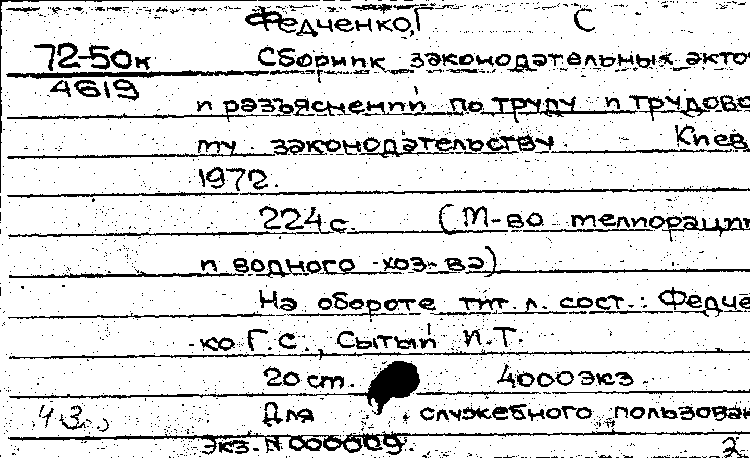 Федченко, Г С
72-50к Сборник законодательных акто
4619
и разъяснений по труду и трудово
му законодательству. Киев
1972.
224 с. (М-во мелиорации
и водного хоз-ва)
На обороте тит. л. сост.: Федче
-ко Г.С., Сытый И.Т.
20 ст. 4000 экз
4.3. Для служебного пользован
Экз. N 000009. 2